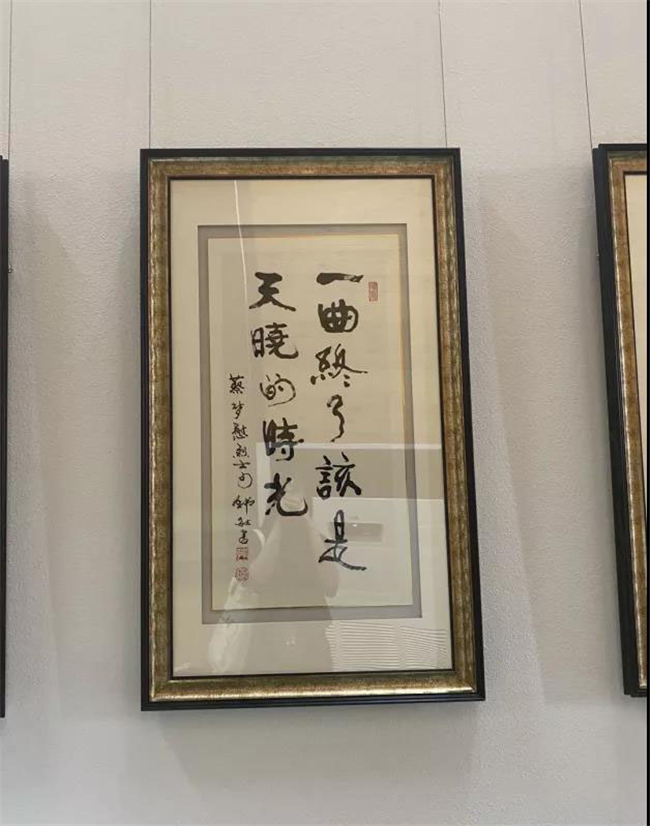 一曲終了該是
天曉的時光
蔡夢慰烈士句 錦敏書